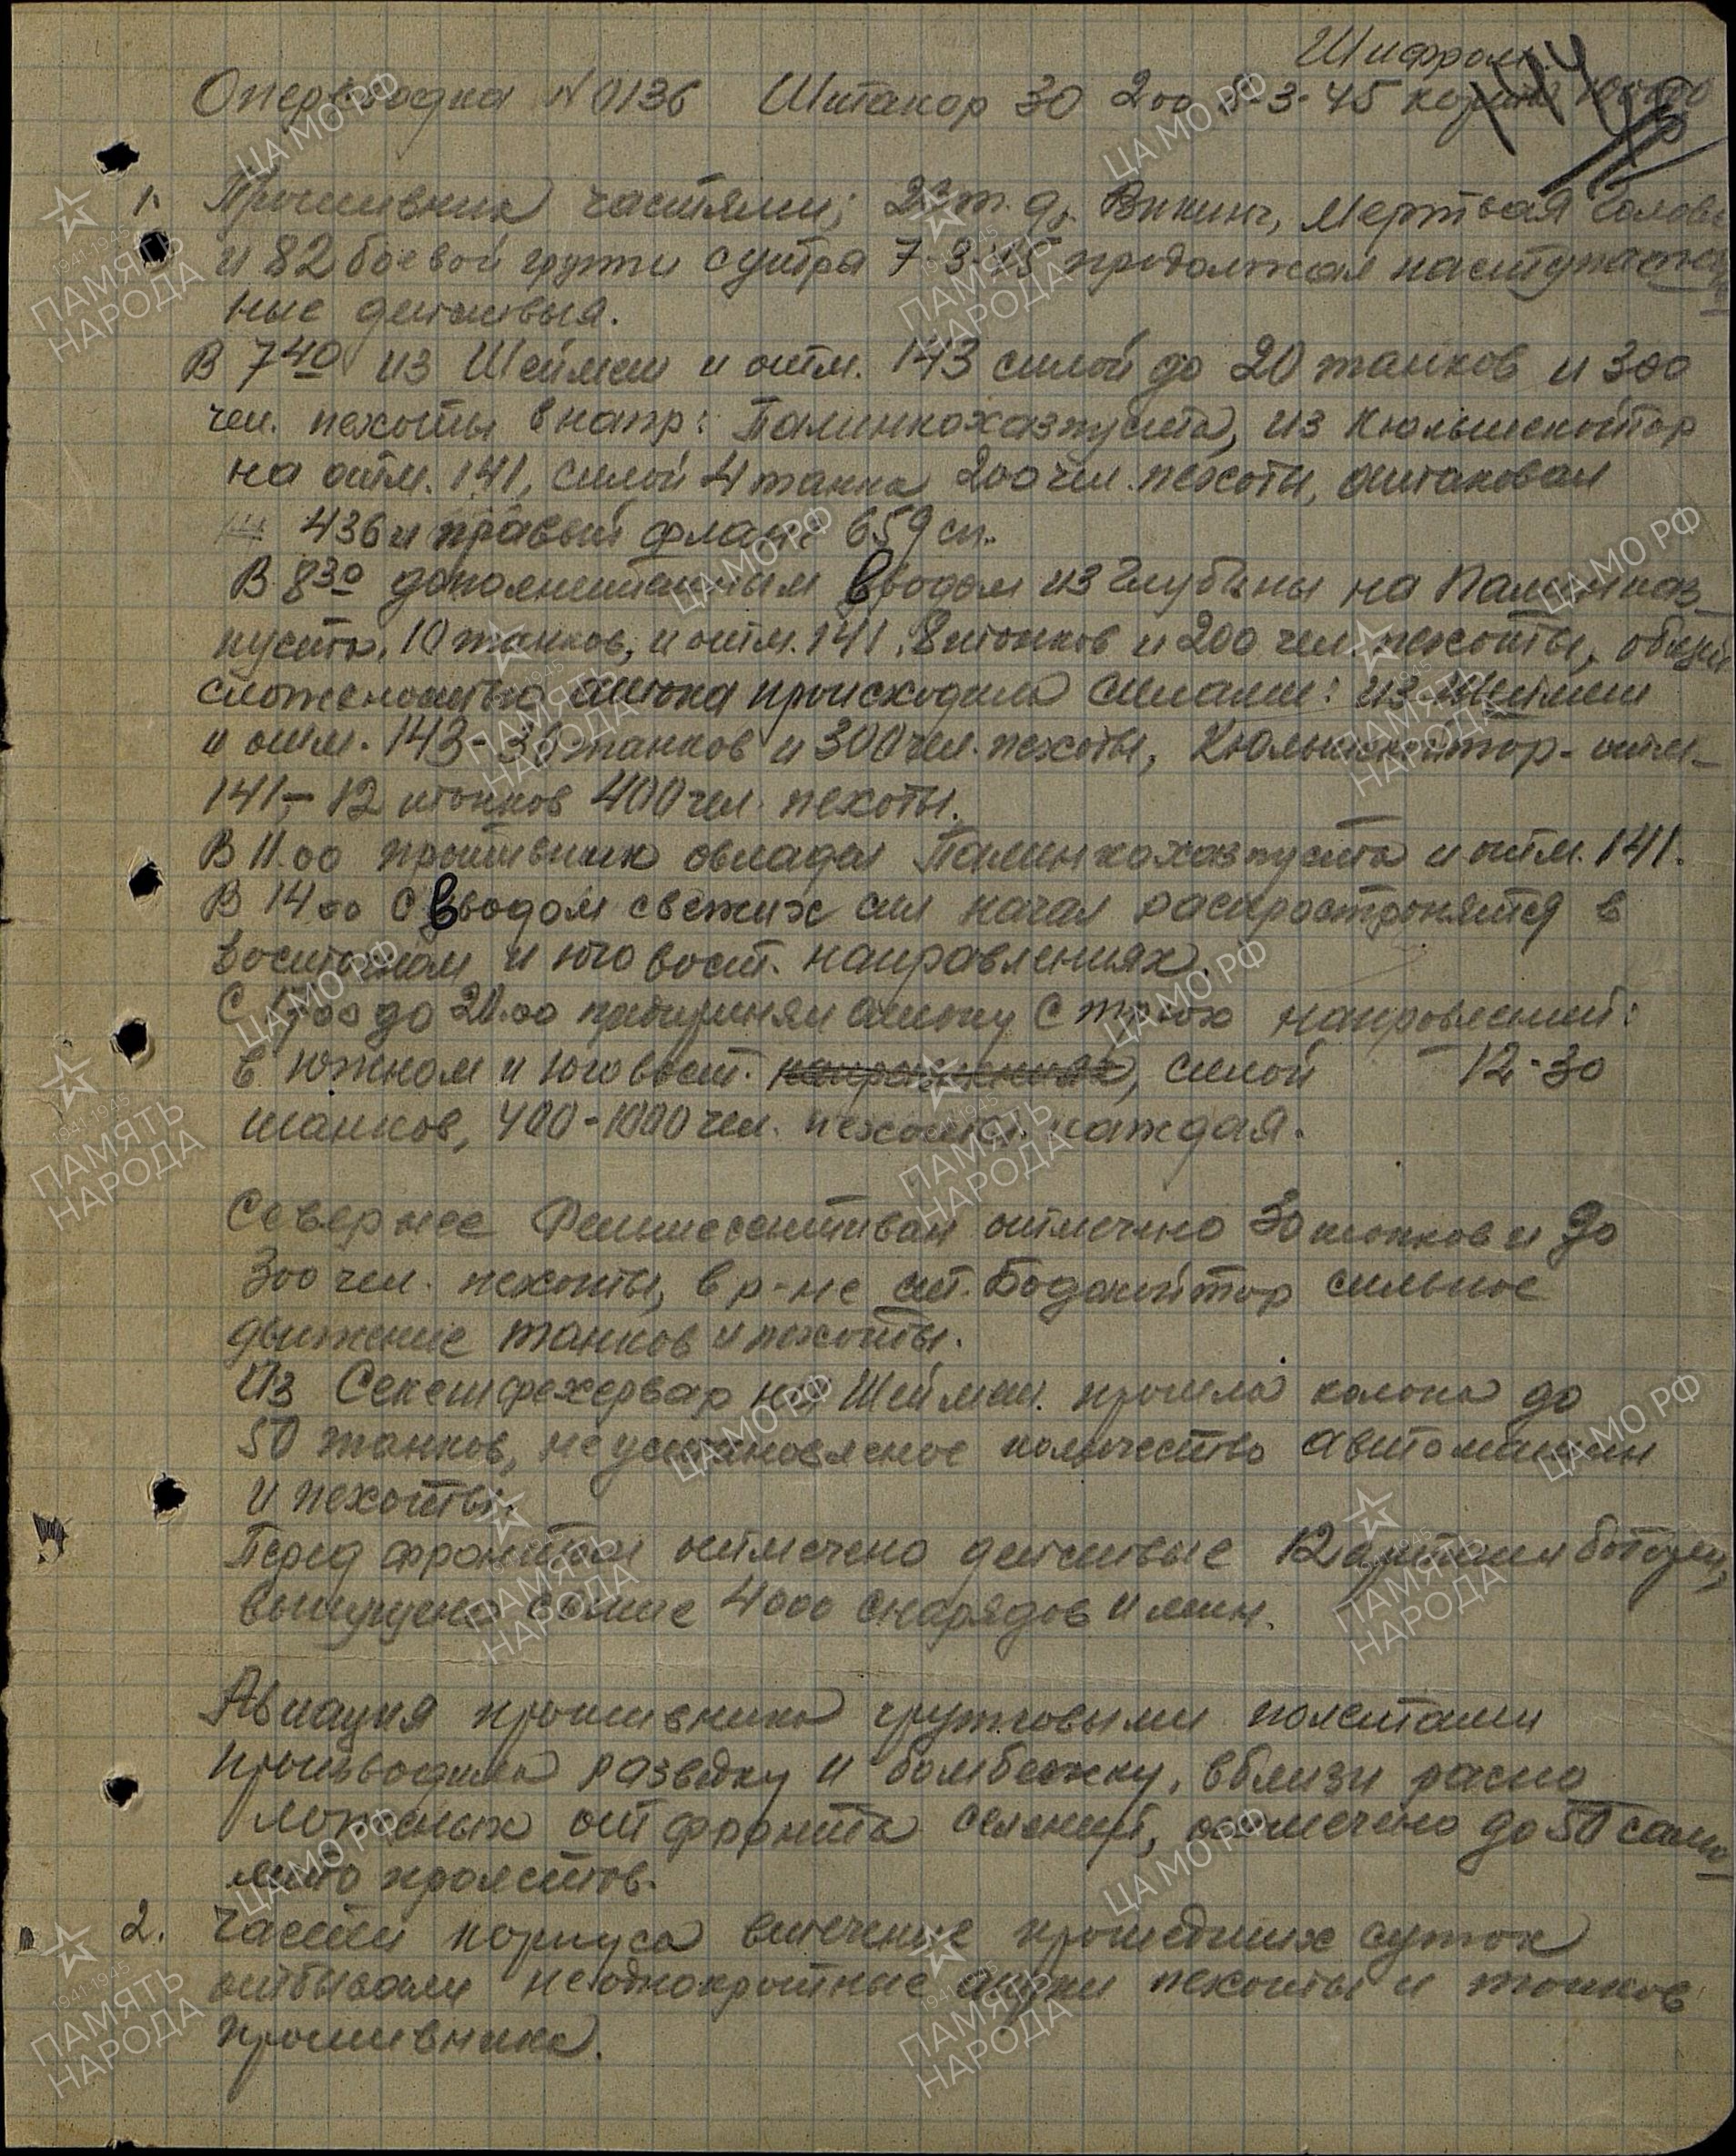 Шифром.
Оперсводка №0136 Штакор 30 2 00 8-3-45 карта 100000
1. Противник частями; 2 т.д., Викинг, Мертвая голова
и 82 боевой групы с утра 7-3-45 продолжал наступатель
ные действия.
В 7 40 из Шеймеш и отм. 143 силой до 20 танков и 300
чел. пехоты в напр: Палинкохазпуста, из Кюльшекойтор
на отм. 141, силой 4 танка 200 чел. пехоты, атаковал
436 и правый фланг 659 сп.
В 8 30 дополнительным вводом из глубины на Палинхаз_
пуста, 10 танков, и отм. 141, 8 танков и 200 чел. пехоты, общей
сложеностью атака происходила силами: из Шеймеш
и отм. 143-30 танков и 300 чел. пехоты, Кюльшекойтор-отм-
141,- 12 танков 400 чел. пехоты.
В 11.00 противник овладел Палинкохазпуста и отм. 141.
В 14 00 с вводом свежих сил начал распространятся в
восточном и юго вост. направлениях.
С 00 до 20.00 предпринял атаку с трех направлений:
в южном и юго вост. направлениях, силой 12-30
танков, 400-1000 чел. пехоты каждая.
Севернее отмечено 30 танков и до
300 чел. пехоты, в р-не ст. Бодакойтор сильное
движение танков и пехоты.
Из Секешфехервар на Шеймеш. прошла колона до
50 танков, не установленое количество автомашин
и пехоты.
Перед фронтом отмечено действие 12 арт батарей,
выпущено свыше 4000 снарядов и мин.
Авиация противника групповыми полетами
производила разведку и бомбежку, вблизи распо
ложеных от фронта селений, отмечено до 50 само_
лето пролетов.
2. Части корпуса втечение прошедших суток
отбивали неоднократные атаки пехоты и танков
противника.
ЦА МО РФ
ПАМЯТЬ
НАРОДА
1941-1945